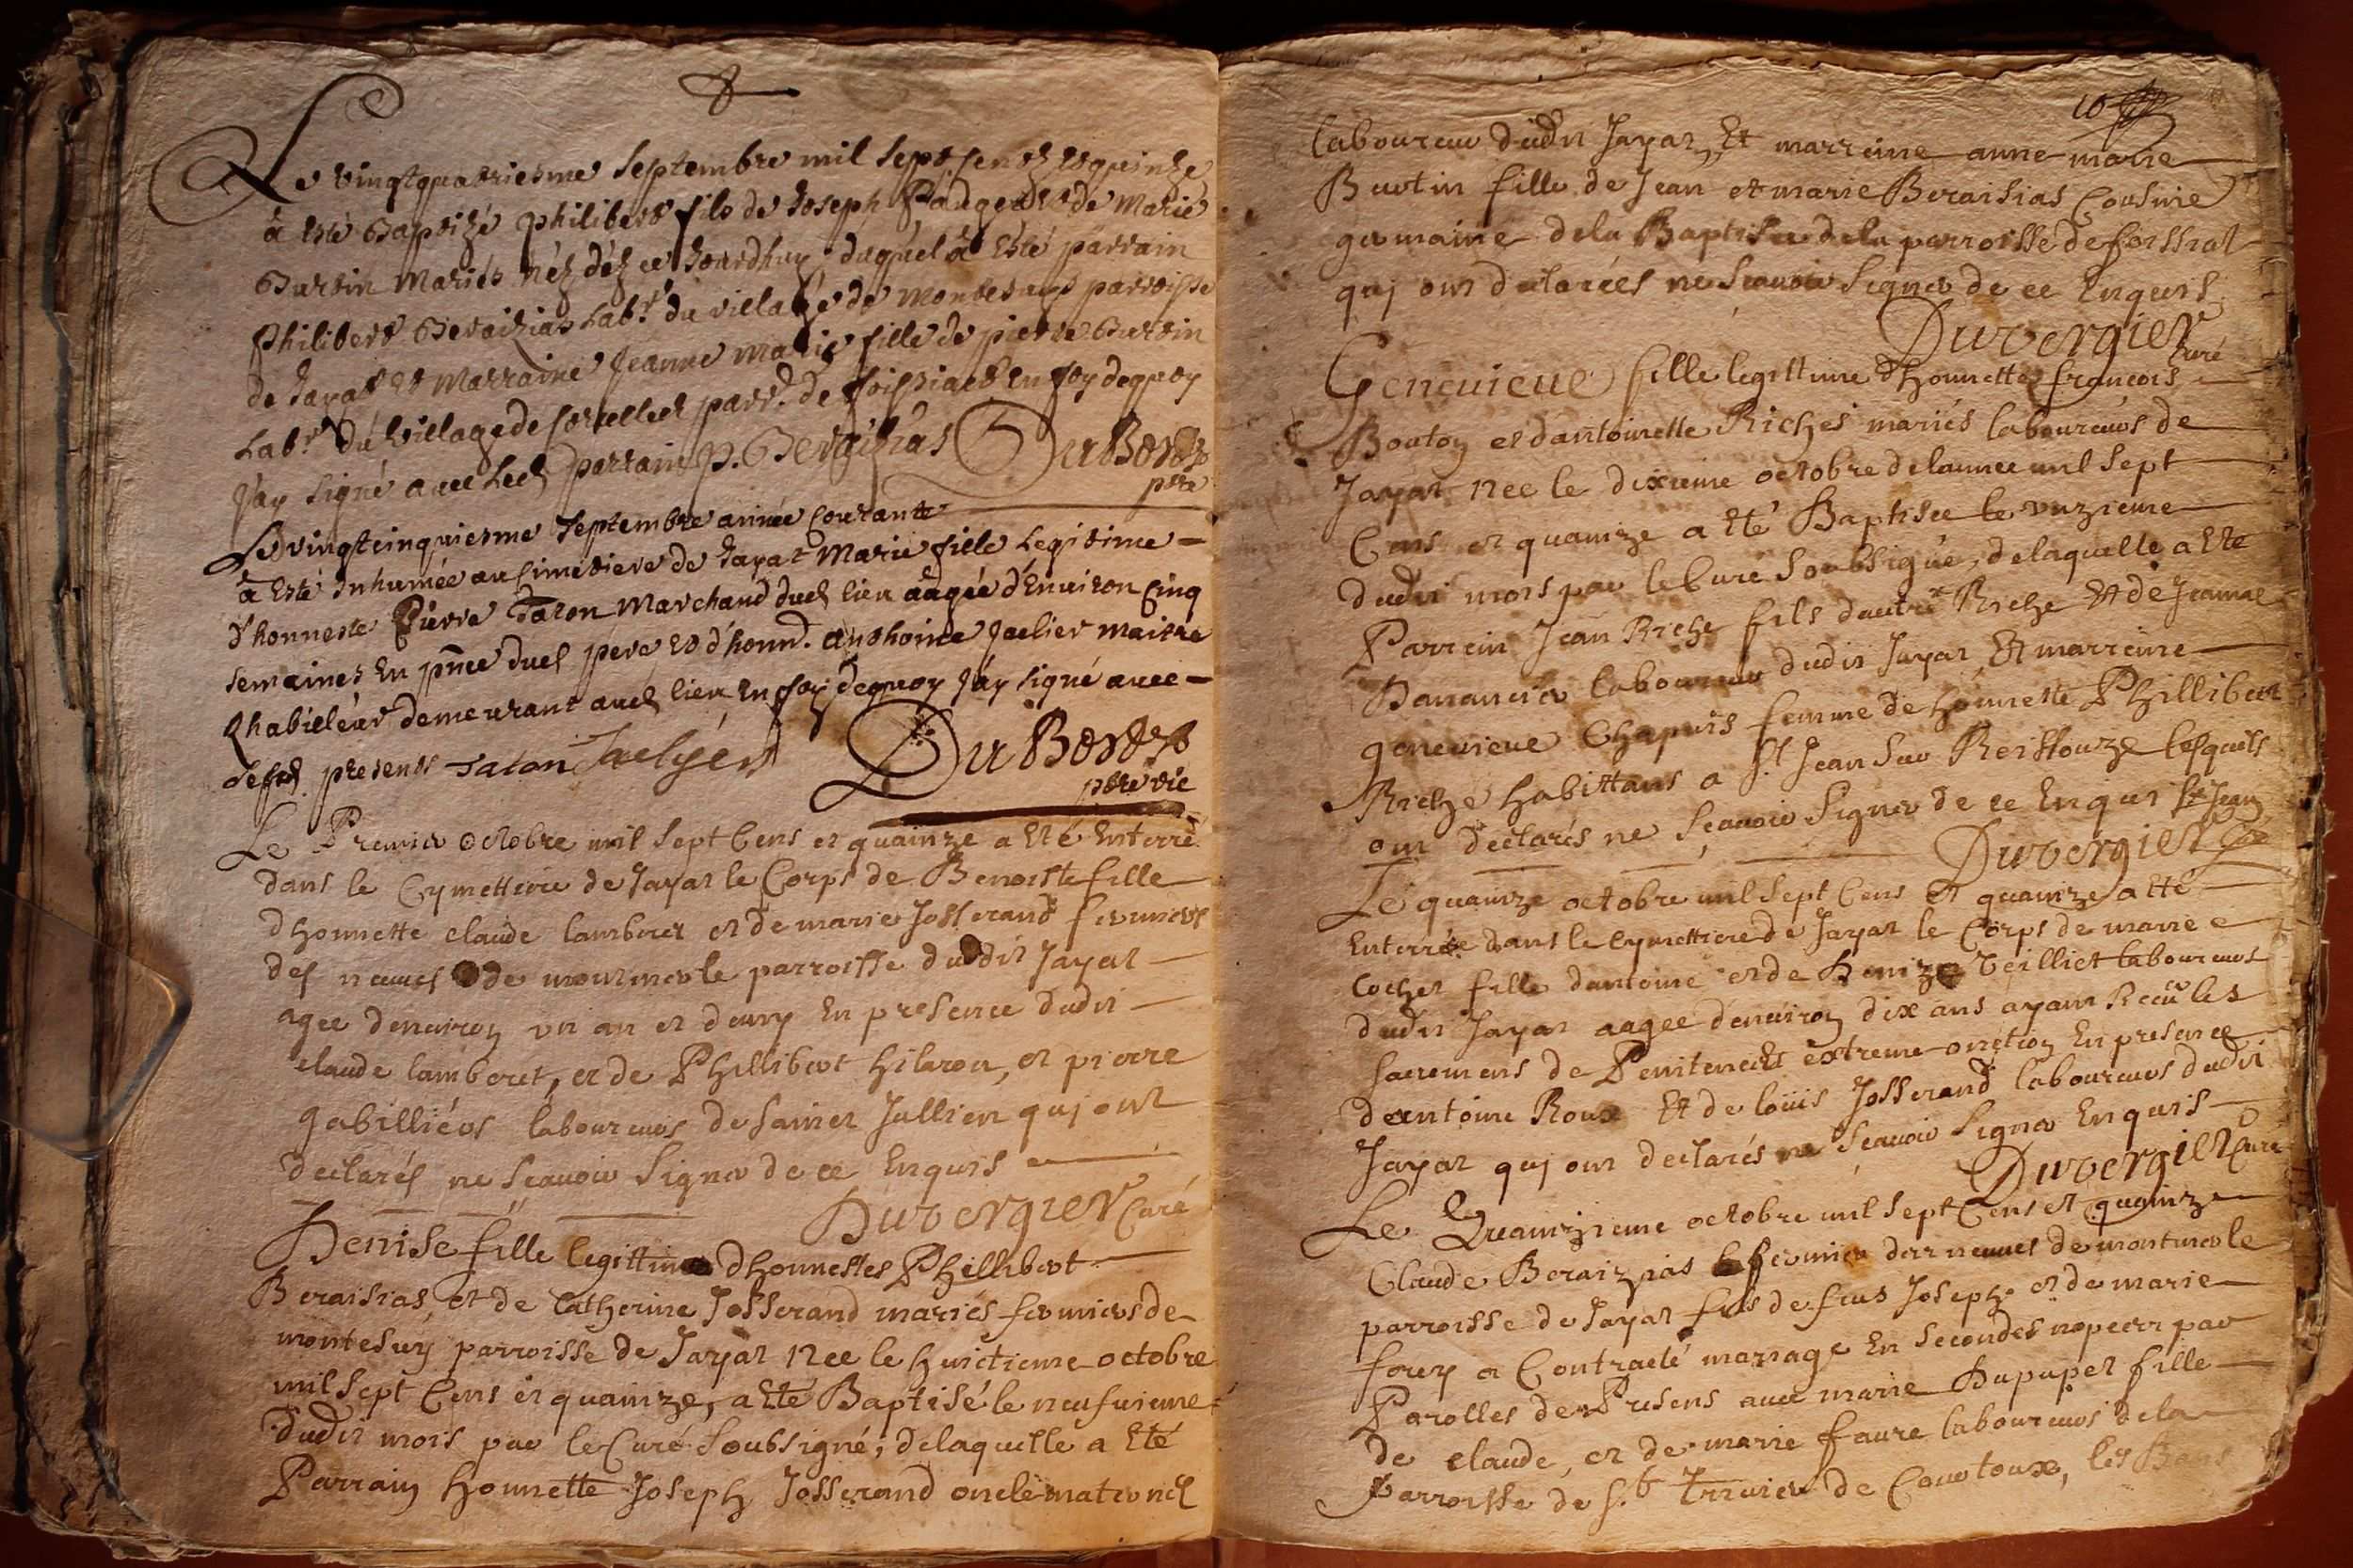 Le vingtquatriesme Septembre mil sept cent et quinze
a esté Baptizé philibert fils de Joseph et de Marie
Burtin Mariés néz déz ce Jourdhuy, duquel a esté parrain
Philibert Beraizias Lab.r du village de Montesuys parroisse
de Jayat et Marraine Jeanne Marie fille de pierre Burtin
Lab.r du village de parr. de foissiact En foy dequoy
J'ay signé avec led parrain P. Beraisias DuBordz
ptre
Le vingtcinquiesme Septembre année courante
a esté Inhumée au Cimetiere de Jayat Marie fille Legitime
d'honneste Pierre Talon Marchand dud lieu aagée d'Environ Cinq
semaines En pnce dud pere et d'honn. Anthoine Jaelier maitre
Chabieleur demeurant aud lieu En foy dequoy J'ay signé avec
lesd. presents Talon Jaelyer DuBordz
ptre vic
Le Premier octobre mil sept Cens et quainze a Eté Enterré
dans le Cymettiere de Jayat le Corps de Benoiste fille
dhonnette claude lamberet et de marie Josserand fermiers
des neuves de montmerle parroisse dudit Jayat
agee denviron un an et demy En presence dudit
claude lamberet, et de Phillibert hilaron, et pierre
gabilliers laboureurs de Sainct Jullien qui ont
declarés ne Scavoir Signer de ce Enquis
Duvergier Curé
Denise fille legittime dhonnestes Phillibert
Beraisias, et de Catherine Josserand mariés fermiers de
montesuy parroisse de Jayat née le huictieme octobre
mil Sept Cens et quainze, a Eté Baptisé le neufvieme
dudit mois par le Curé Soubsigné, delaquelle a Eté
Parrain honnette Joseph Josserand oncle maternel
10
laboureur dudit Jayat, Et marreine anne marie
Burtin fille de Jean et marie Beraisias Cousine
germaine dela Baptisee dela parroisse de foissiat
qui ont declarées ne Scavoir Signer de ce Enquis
Duvergier
Curé
Genevieve fille legittime d'honnettes francois
Bouton et dantoinette Riches mariés laboureurs de
Jayat née le dixieme octobre delannee mil Sept
Cens et quainze a Eté Baptisee le unzieme
dudit mois par le Curé Soubsigné, delaquelle a Eté
Parrein Jean Riche fils dautre Riche Et de Jeanne
laboureur dudit Jayat, Et marreine
genevieve Chapuis femme de honnette Phillibert
Riche habittans a St Jean Sur Reissouze lesquels
ont declarés ne Scavoir Signer de ce Enquis
Duvergier Curé
Le quainze octobre mil Sept Cens et quainze a Eté
Enterrée dans le Cymettiere de Jayat le Corps de marie
Cochet fille dantoine et de Denize Veilliet laboureurs
dudit Jayat aagee denviron dix ans ayant Receu les
Sacremens de Penitence Et extreme onction En presence
dantoine Roux Et de louis Josserand laboureurs dudit
Jayat qui ont declarés ne Scavoir Signer Enquis
Duvergier Curé
Le Quainzieme octobre mil Sept Cens et quainze
Claude Beraizias fermier des neuves de montmerle
parroisse de Jayat fils de feus Joseph et de marie
forey a Contracté mariage En Secondes nopces par
Parolles de Presens avec marie Dupupet fille
de claude, et de marie faure laboureurs dela
Parroisse de St Trivier de Courtoux, les Bans